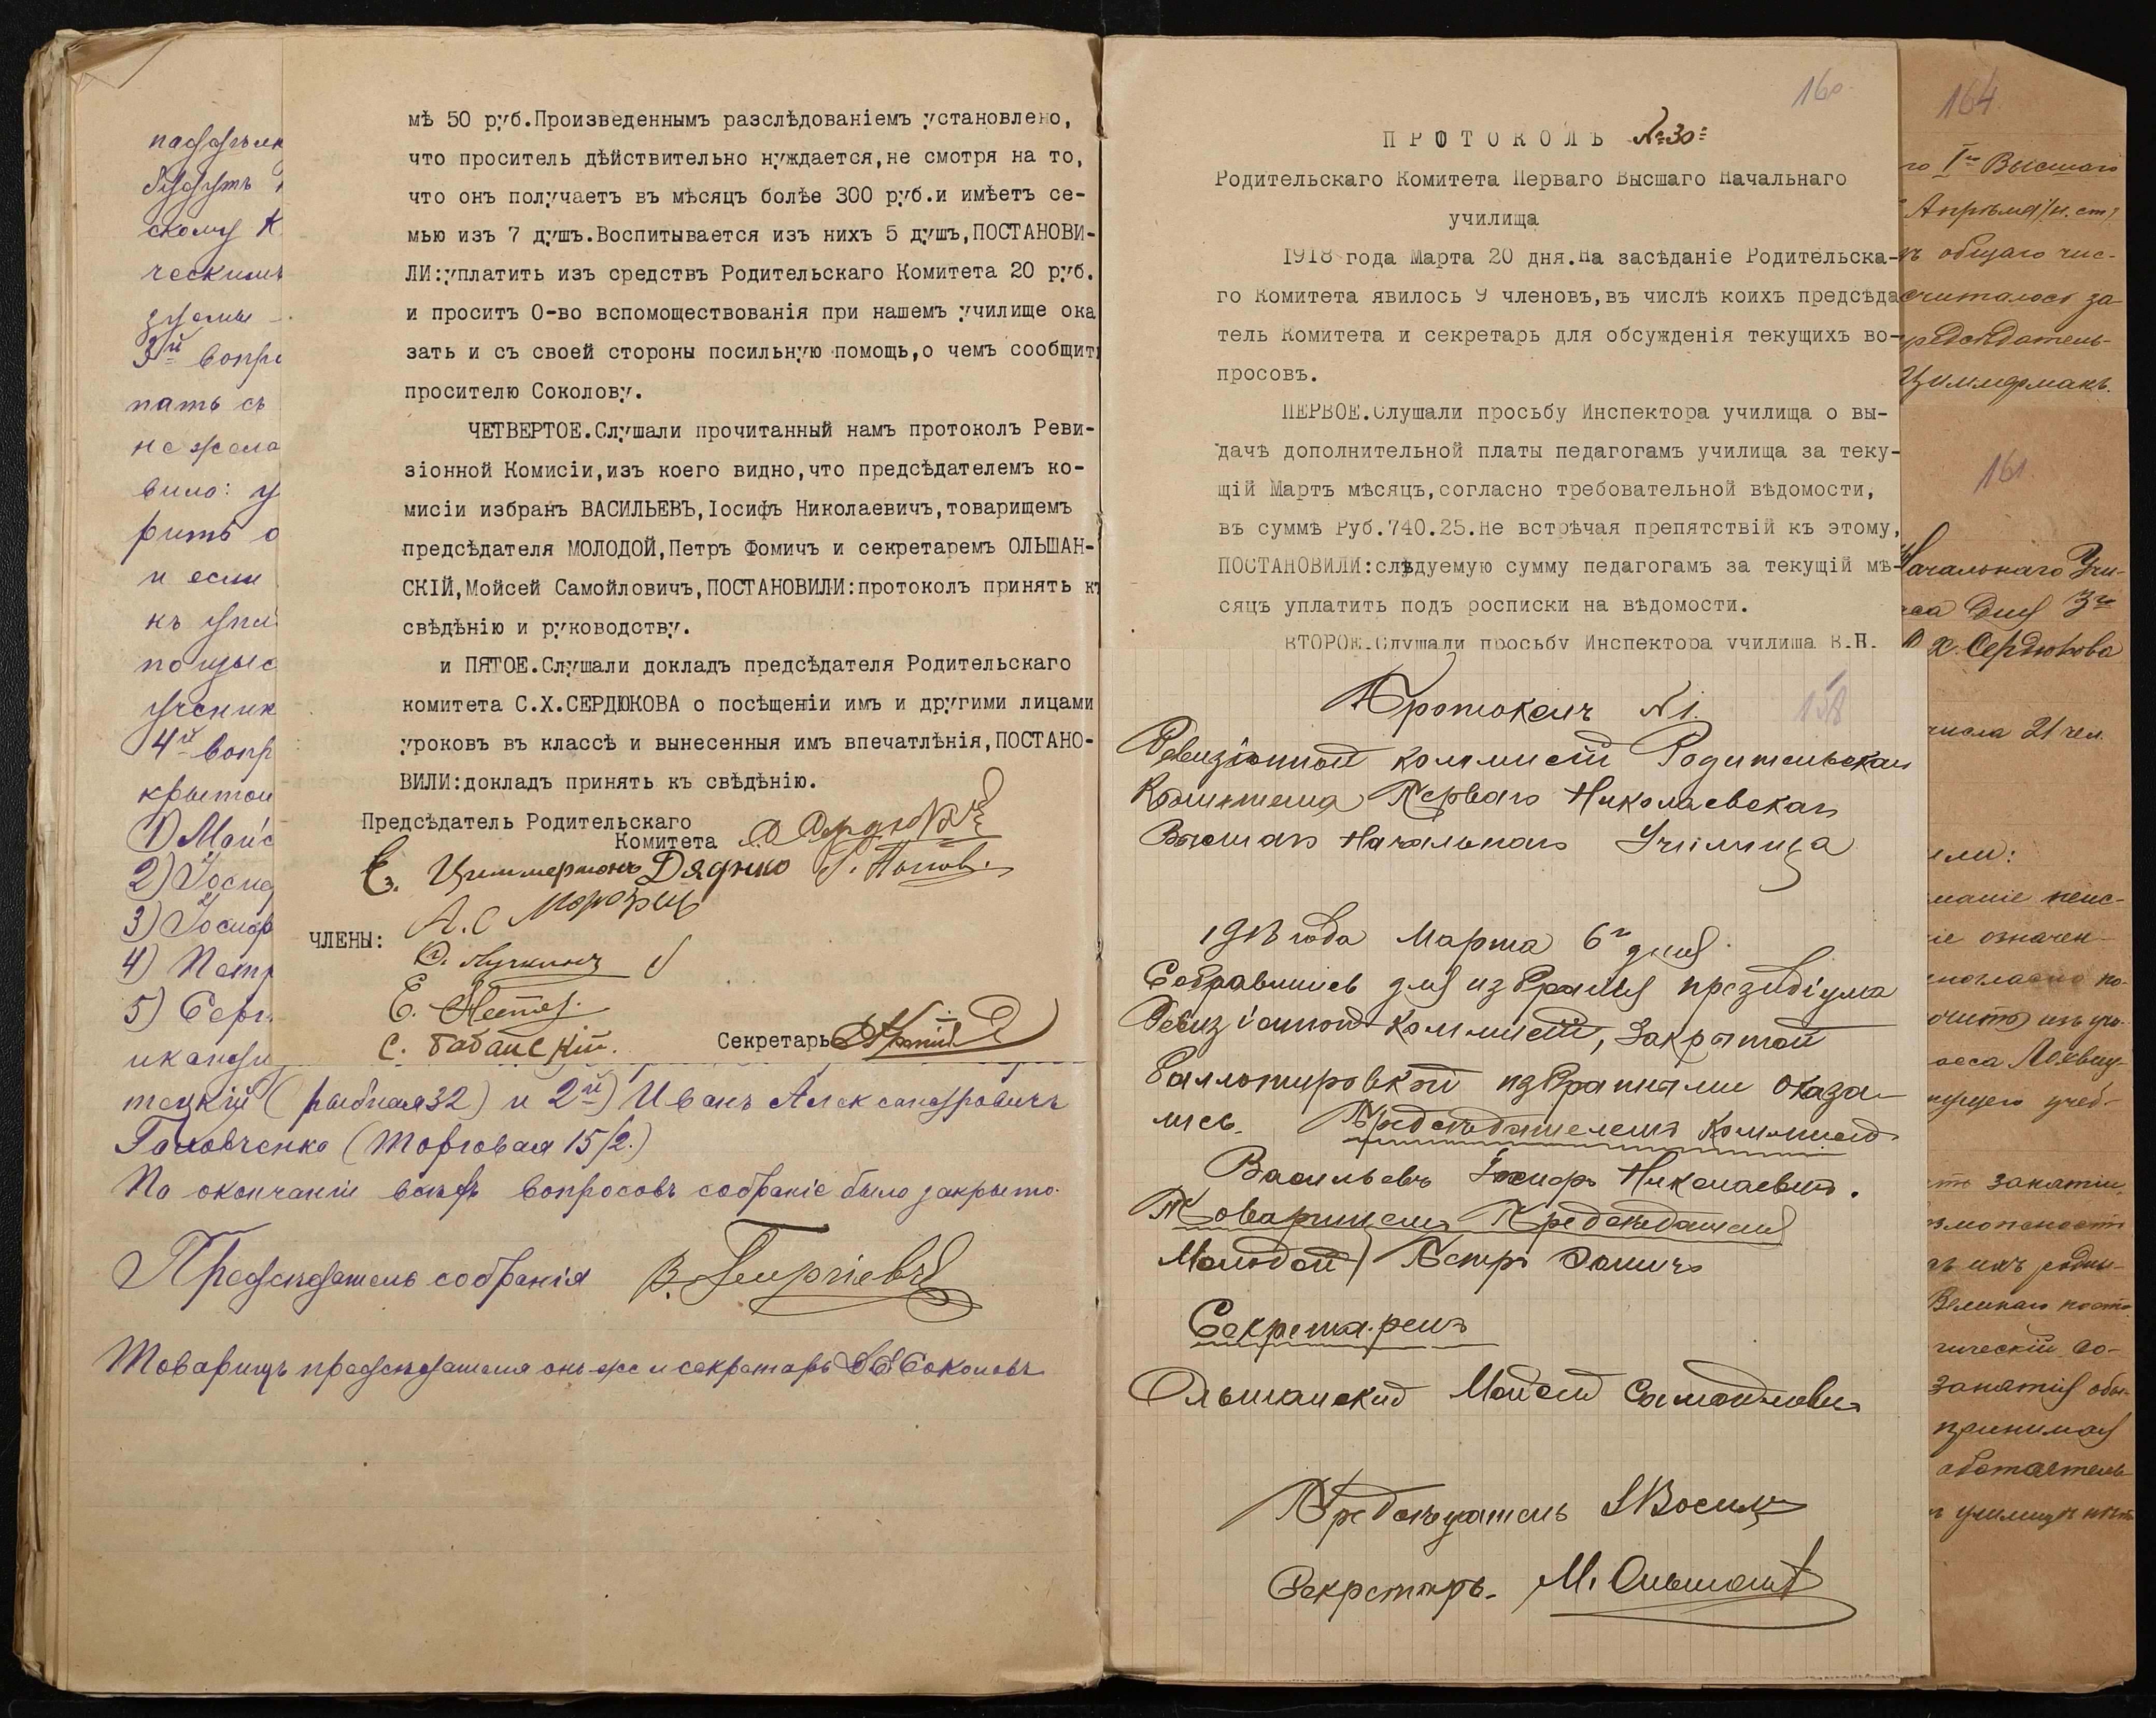 мѣ 50 руб.Произведеннымъ разслѣдованіемъ установлено,
что проситель дѣйствительно нуждается,не смотря на то,
что онъ получаетъ въ мѣсяцъ болѣе 300 руб.и имѣетъ се-
мью изъ 7 душъ.Воспитывается изъ нихъ 5 душъ,ПОСТАНОВИ-
ЛИ:уплатить изъ средствъ Родительскаго Комитета 20 руб.
и проситъ О-во вспомоществованія при нашемъ училище ока
зать и съ своей стороны посильную помощь,о чемъ сообщить
просителю Соколову.
ЧЕТВЕРТОЕ.Слушали прочитанный намъ протоколъ Реви-
зіонной Комисіи,изъ коего видно,что предсѣдателемъ ко-
мисіи избранъ ВАСИЛЬЕВЪ,Іосифъ Николаевичъ,товарищемъ
предсѣдателя МОЛОДОЙ,Петръ Фомичъ и секретаремъ ОЛЬШАН-
СКІЙ,Мойсей Самойловичъ,ПОСТАНОВИЛИ:протоколъ принять къ
свѣдѣнію и руководству.
и ПЯТОЕ.Слушали докладъ предсѣдателя Родительскаго
комитета С.Х.СЕРДЮКОВА о посѣщеніи имъ и другими лицами
уроковъ въ классѣ и вынесенныя имъ впечатлѣнія,ПОСТАНО-
ВИЛИ:докладъ принять къ свѣдѣнію.
Предсѣдатель Родительскаго
Комитета
Е. Циммерманъ Дядчко Г. Поповъ
А.С Морозъ
ЧЛЕНЫ:
С. Бабанскій.
Секретарь
скому К
3й вопр
пать съ
не жела
вило: у
рить о
и если
къ упл
ученик
4й вопр
крытой
1) Мойс
2) Іосиф
3) Іосиф
4) Петр
5) Серг.
и канди
тецкій (рыбная 32) и 2й) Иванъ Александровичъ
Головченко (Торговая 15/2.)
По окончаніи всѣхъ вопросовъ собраніе было закрыто.
Предсѣдатель собранія В. Георгіевъ
Товарищъ предсѣдателя онъ же и секретарь Соколовъ
160.
ПРОТОКОЛЪ №30
Родительскаго Комитета Перваго Высшаго Начальнаго
училища
1918 года Марта 20 дня.На засѣданіе Родительска-
го Комитета явилось 9 членовъ,въ числѣ коихъ предсѣда
тель Комитета и секретарь для обсужденія текущихъ во-
просовъ.
ПЕРВОЕ.Слушали просьбу Инспектора училища о вы-
дачѣ дополнительной платы педагогамъ училища за теку-
щій Мартъ мѣсяцъ,согласно требовательной вѣдомости,
въ суммѣ Руб.740.25.Не встрѣчая препятствій къ этому,
ПОСТАНОВИЛИ:слѣдуемую сумму педагогамъ за текущій мѣ-
сяцъ уплатить подъ росписки на вѣдомости.
ВТОРОЕ.Слушали просьбу Инспектора училища В.Н.
158
Протоколъ №1.
Ревизіонной коммисіи Родительскаго
Комитета Перваго Николаевскаго
Высшаго Начальнаго Училища
1918 года Марта 6го дня
Собравшись для избранія президіума
Ревизіонной Коммисіи, закрытой
баллотировкой избранными оказа-
лись. Предсѣдателемъ Коммисіи
Васильевъ Іосифъ Николаевичъ.
Товарищемъ Предсѣдателя
Молодой Петръ Фомичъ
Секретаремъ
Ольшанскій Мойсей Самойловичъ
Предсѣдатель
Секретарь
164.
го Iго Высшаго
Апрѣля /н. ст/
ъ общаго чис-
считалось за
редсѣдатель-
Циммерманъ.
161.
Начальнаго Учи-
дня 3го
С. Х. Сердюкова
числа 21 чел.
или:
іе означен
занятій
Великаго поста
ческій со-
занятія обы-
принимая
обстоятель-